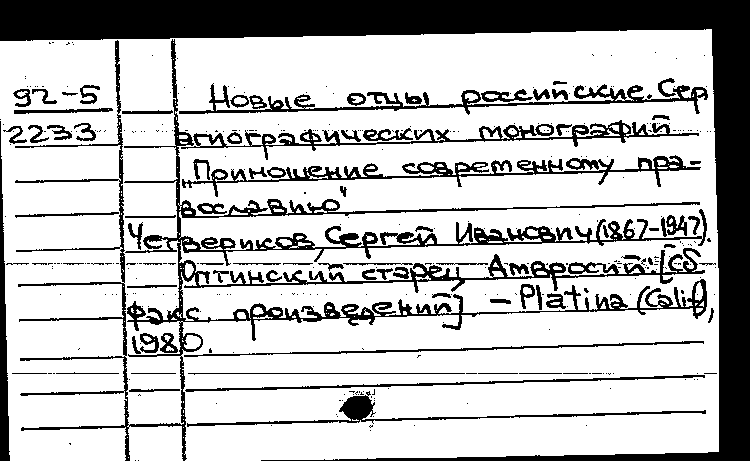 92-5 Новые отцы российские. Сер.
2233 агиографических монографий
"Приношение современному пра-
вославию"
Четвериков, Сергей Иванович (1867-1947).
Оптинский старец Амвросий: [Сб.
факс. произведений]. - Platina (Calif),
1980.